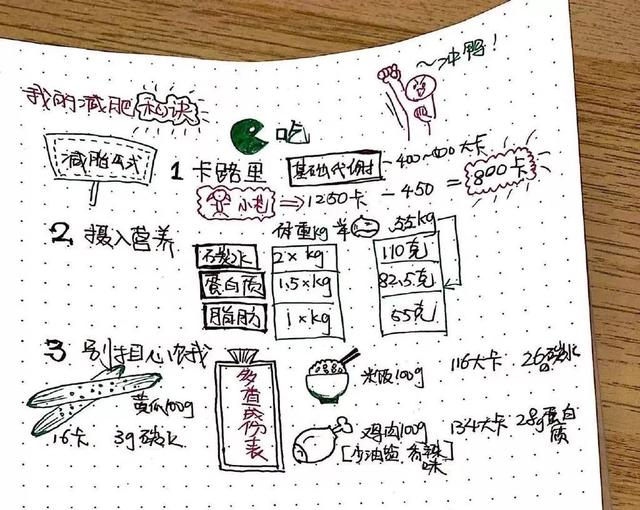 ~冲鸭！
我的减肥秘诀
吃
减脂公式
1 卡路里 基础代谢 -400~600大卡
小苍 ⇒ 1250卡 - 450 = 800卡
2. 摄入营养 体重kg 55kg
碳水 2×kg 110克
蛋白质 1.5×kg 82.5克
脂肪 1×kg 55克
3 别担心有我
多查成份表
米饭100g 116大卡 26g碳水
黄瓜100g
16卡 3g碳水
鸡肉100g 134大卡 28g蛋白质
[少油盐, 香辣味]